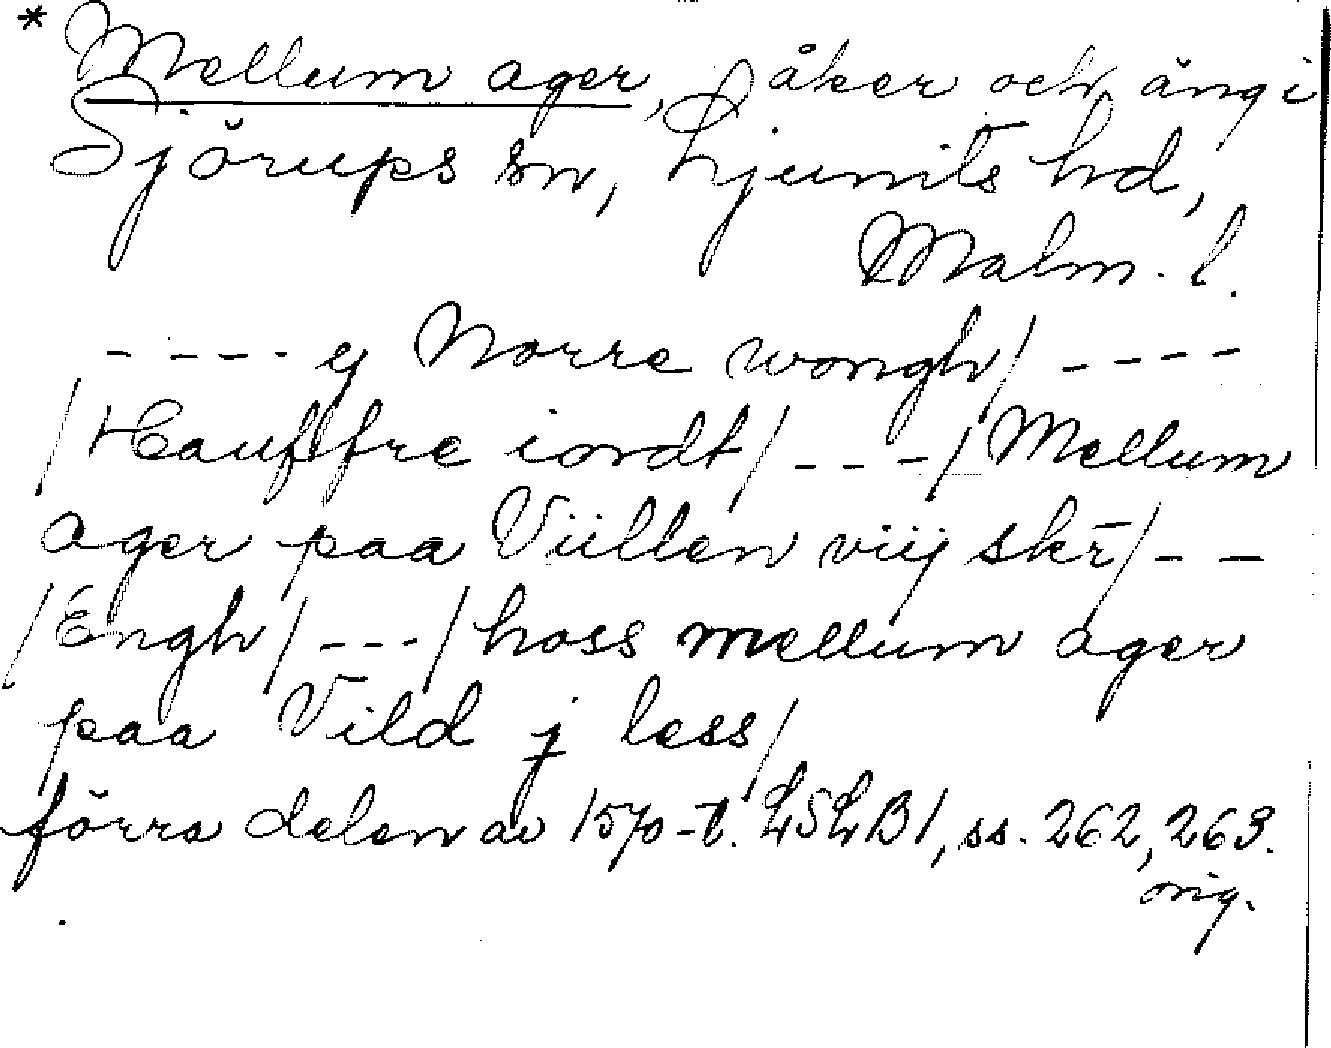 * Mellum ager, åker och äng i
Sjörups sn, Ljunits hd,
Malm. l.
- - - - ej Norre wongh/ - - - -
/Hauffre iordt/ - - - / Mellum
ager paa Viillen viij skr̄/ - -
/Engh/ - - - / hoss mellum ager
paa Vild j less/
förra delen av 1570-t. LSLB1, ss. 262, 263.
orig.